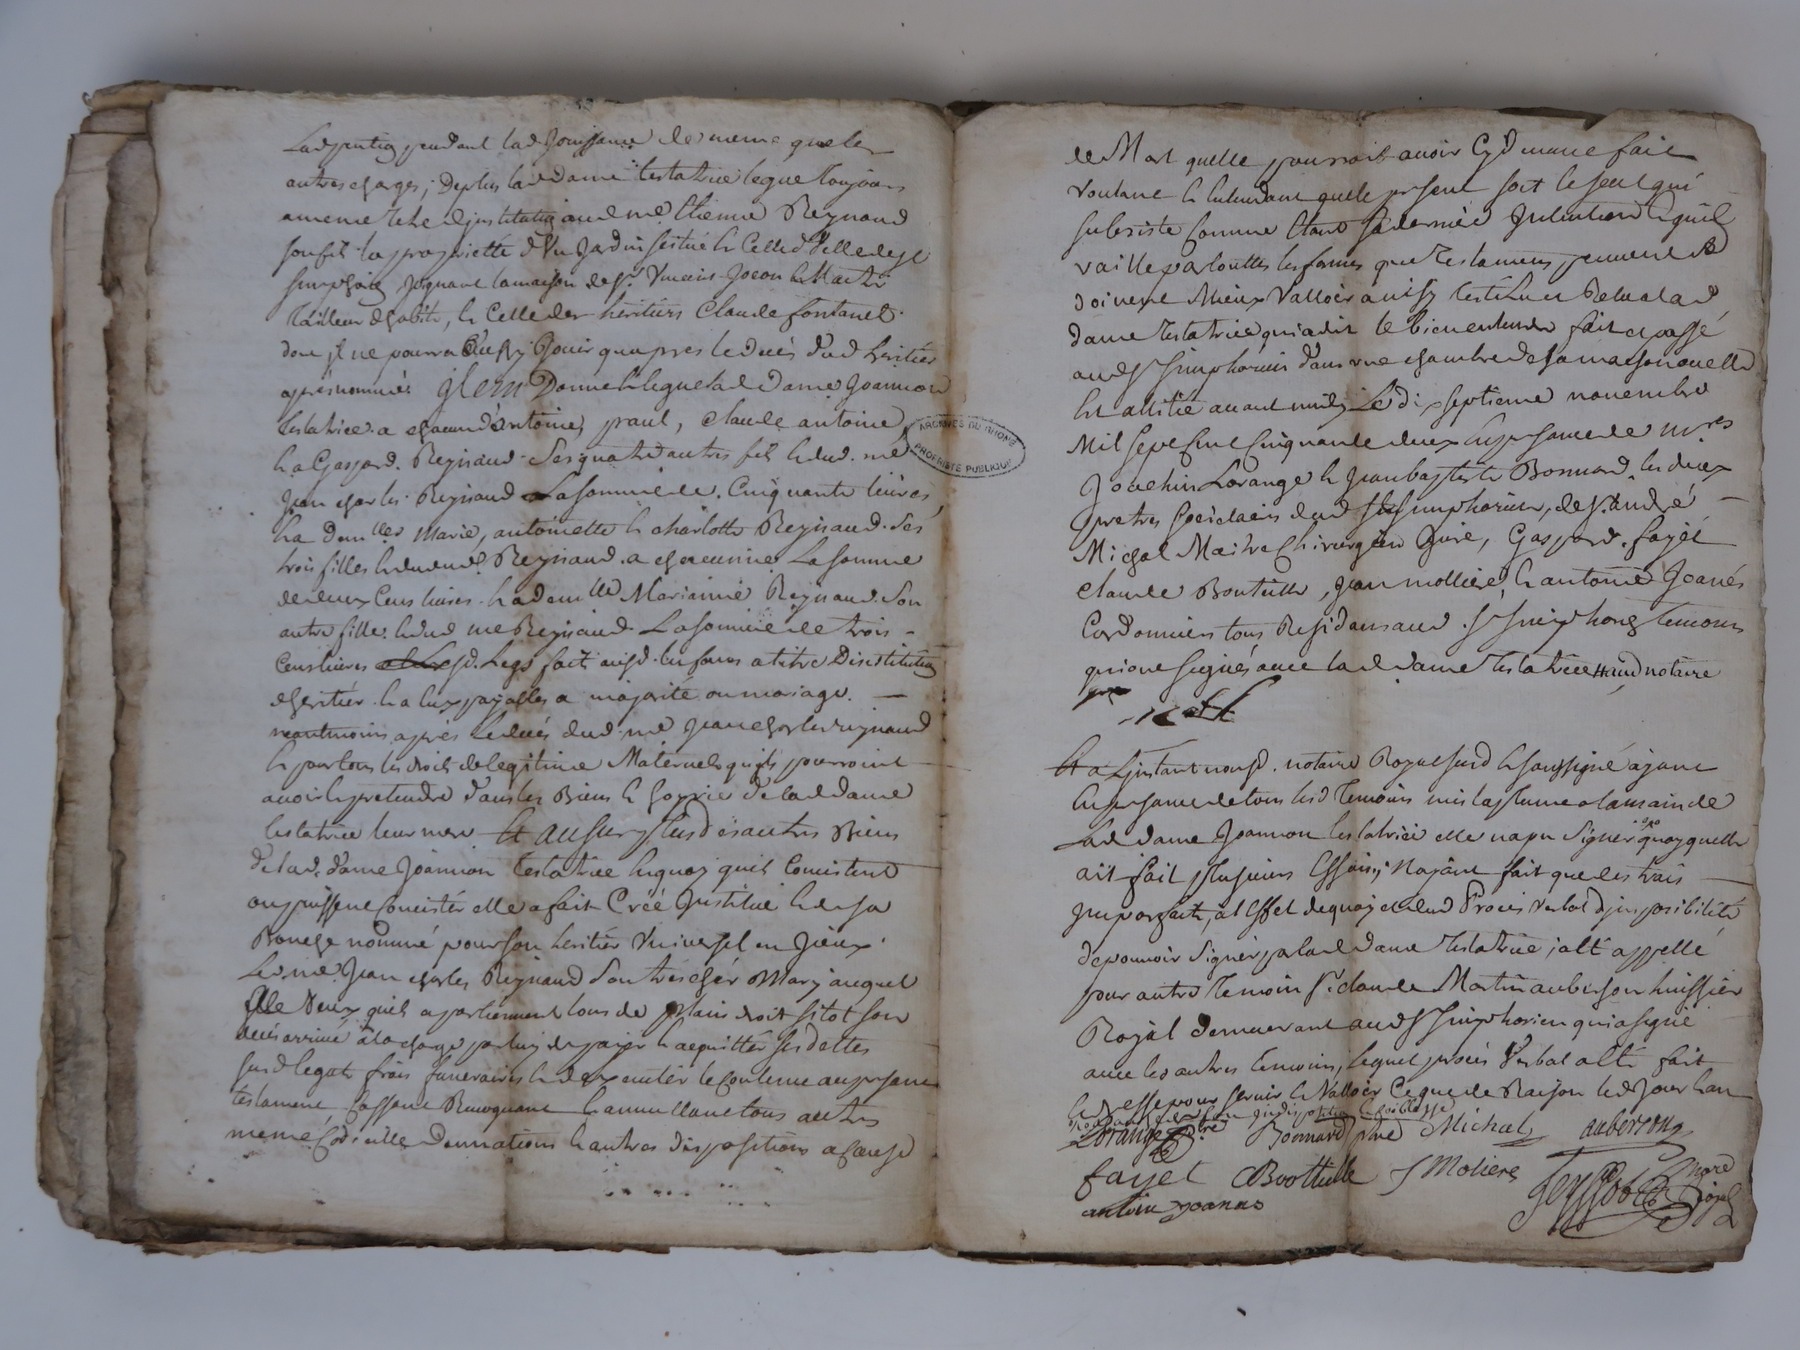 pendant lad jouissance de meme que les
autres charges; Deplus lad dame testatrice legue toujours
a meme titre d'institution aud me Etienne Reynaud
son fils la propriette d'Un Jardin scitué en Celled Ville de St
Simphorien joignant la maison de Sr
tailleur d'habits, et Celle des heritiers Claude fontanel.
dont il ne pourra aussy Jouir qu'apres le decés dud heritier
aprésnommé; Item Donne et legue lad Dame Joannon
testatrice a chacun d'antoine, paul, claude antoine
et a Gaspard Reynaud ses quatre autres fils et dud me
Jean charles Reynaud La somme de Cinquante livres
et a demlles Marie, antoinette et charlotte Reynaud ses
trois filles et dud me Reynaud a chacunne La somme
de deux Cens livres et a demlle Marianne Reynaud son
autre fille et dud me Reynaud La somme de trois
Cens livres Legs fait ausd enfans a titre D'institution
d'heritier et a eux payables a majorité ou mariage
neantmoins aprés le decés dud me Jean charles reynaud
et pour tous les droits de legitime Maternels qu'ils pourroint
avoir et pretendre dans les Biens et hoyrie de lad dame
testatrice leur mere Et au surplus des autres Biens
de lad dame Joannon testatrice en quoy quils Consistent
ou puissent Concister elle a fait Créé Institué et de sa
Bouche nommé pour son heritier Universel en Jceux
Led me Jean charles Reynaud son tres chér Mary auquel
Elle Veux quils apartiennent tous de plain droit sitot son
decés arrivé a la charge par luy de payer et acquitter ses dettes
susd legats frais funeraires et d'executér le Contenu au present
testament Cassant Revoquant et annullant tous autres
meme Codicille Donnations et autres dispositions a Cause
de Mort quelle pourroit avoir Cy devant fait
voulant et entendant que le present soit le seul qui
subsiste Comme Etant sa derniere Intention et quil
vaille par touttes les formes que testament peuvent et
doivent Mieux Valloir ainsy testé lu et Relu a lad
dame testatrice qui a dit le bien entendre fait et passé
aud St Simphorien dans une chambre de sa maison ou elle
Est allitée avant midy Le dix septieme novembre
Mil sept Cent Cinquante deux En presance de mres
Jouchin Lorange et Jean baptiste Bonnard les deux
pretres Societaires dud St Simphorien, de Sr André
Michal Maitre Chirurgien Juré, Gaspard fayét
claude Bouteille, Jean mollière, et antoine Joanés
Cordonniers tous Residans aud St Simphorien temoins
qui ont signés avec lad dame testatrice et notaire
Et a L'instant nousd notaire Royal susd et soussigné ayant
En presance de tous lesd temoins mis la plume a la main de
Lad dame Joannon testatrice elle na pu signer quoy quelle
ait fait plusieurs Essais, N'ayant fait que des trais
Imparfaits, a l'Effet de quoy et dud Procés Verbal d'imposibilité
de pouvoir signer par lad dame testatrice, a été appellé
pour autre temoin Sr claude Martin auberson huissier
Royal demeurant aud St Simphorien qui a signé
avec les autres temoins, lequel procés Verbal a été fait
et dressé pour servir et Valloir Ce que de Raison led Jour
Lorange Bonnard ptre Michal auberson
fayet CBoutteille J Moliere
antoine joannes